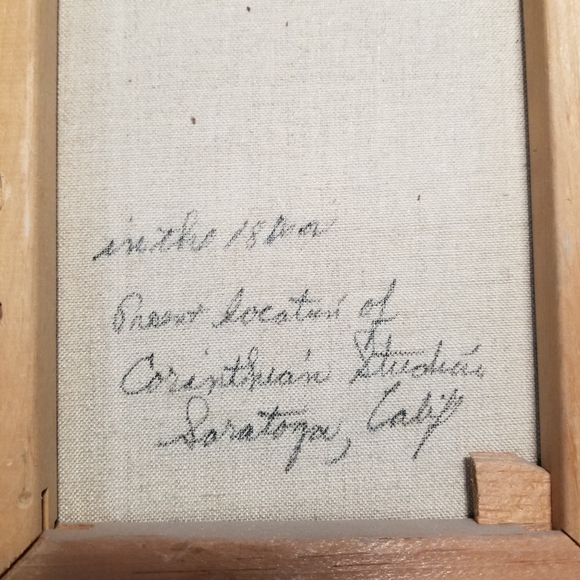 in the 18
Present location of
Corinthian Studios
Saratoga, Calif